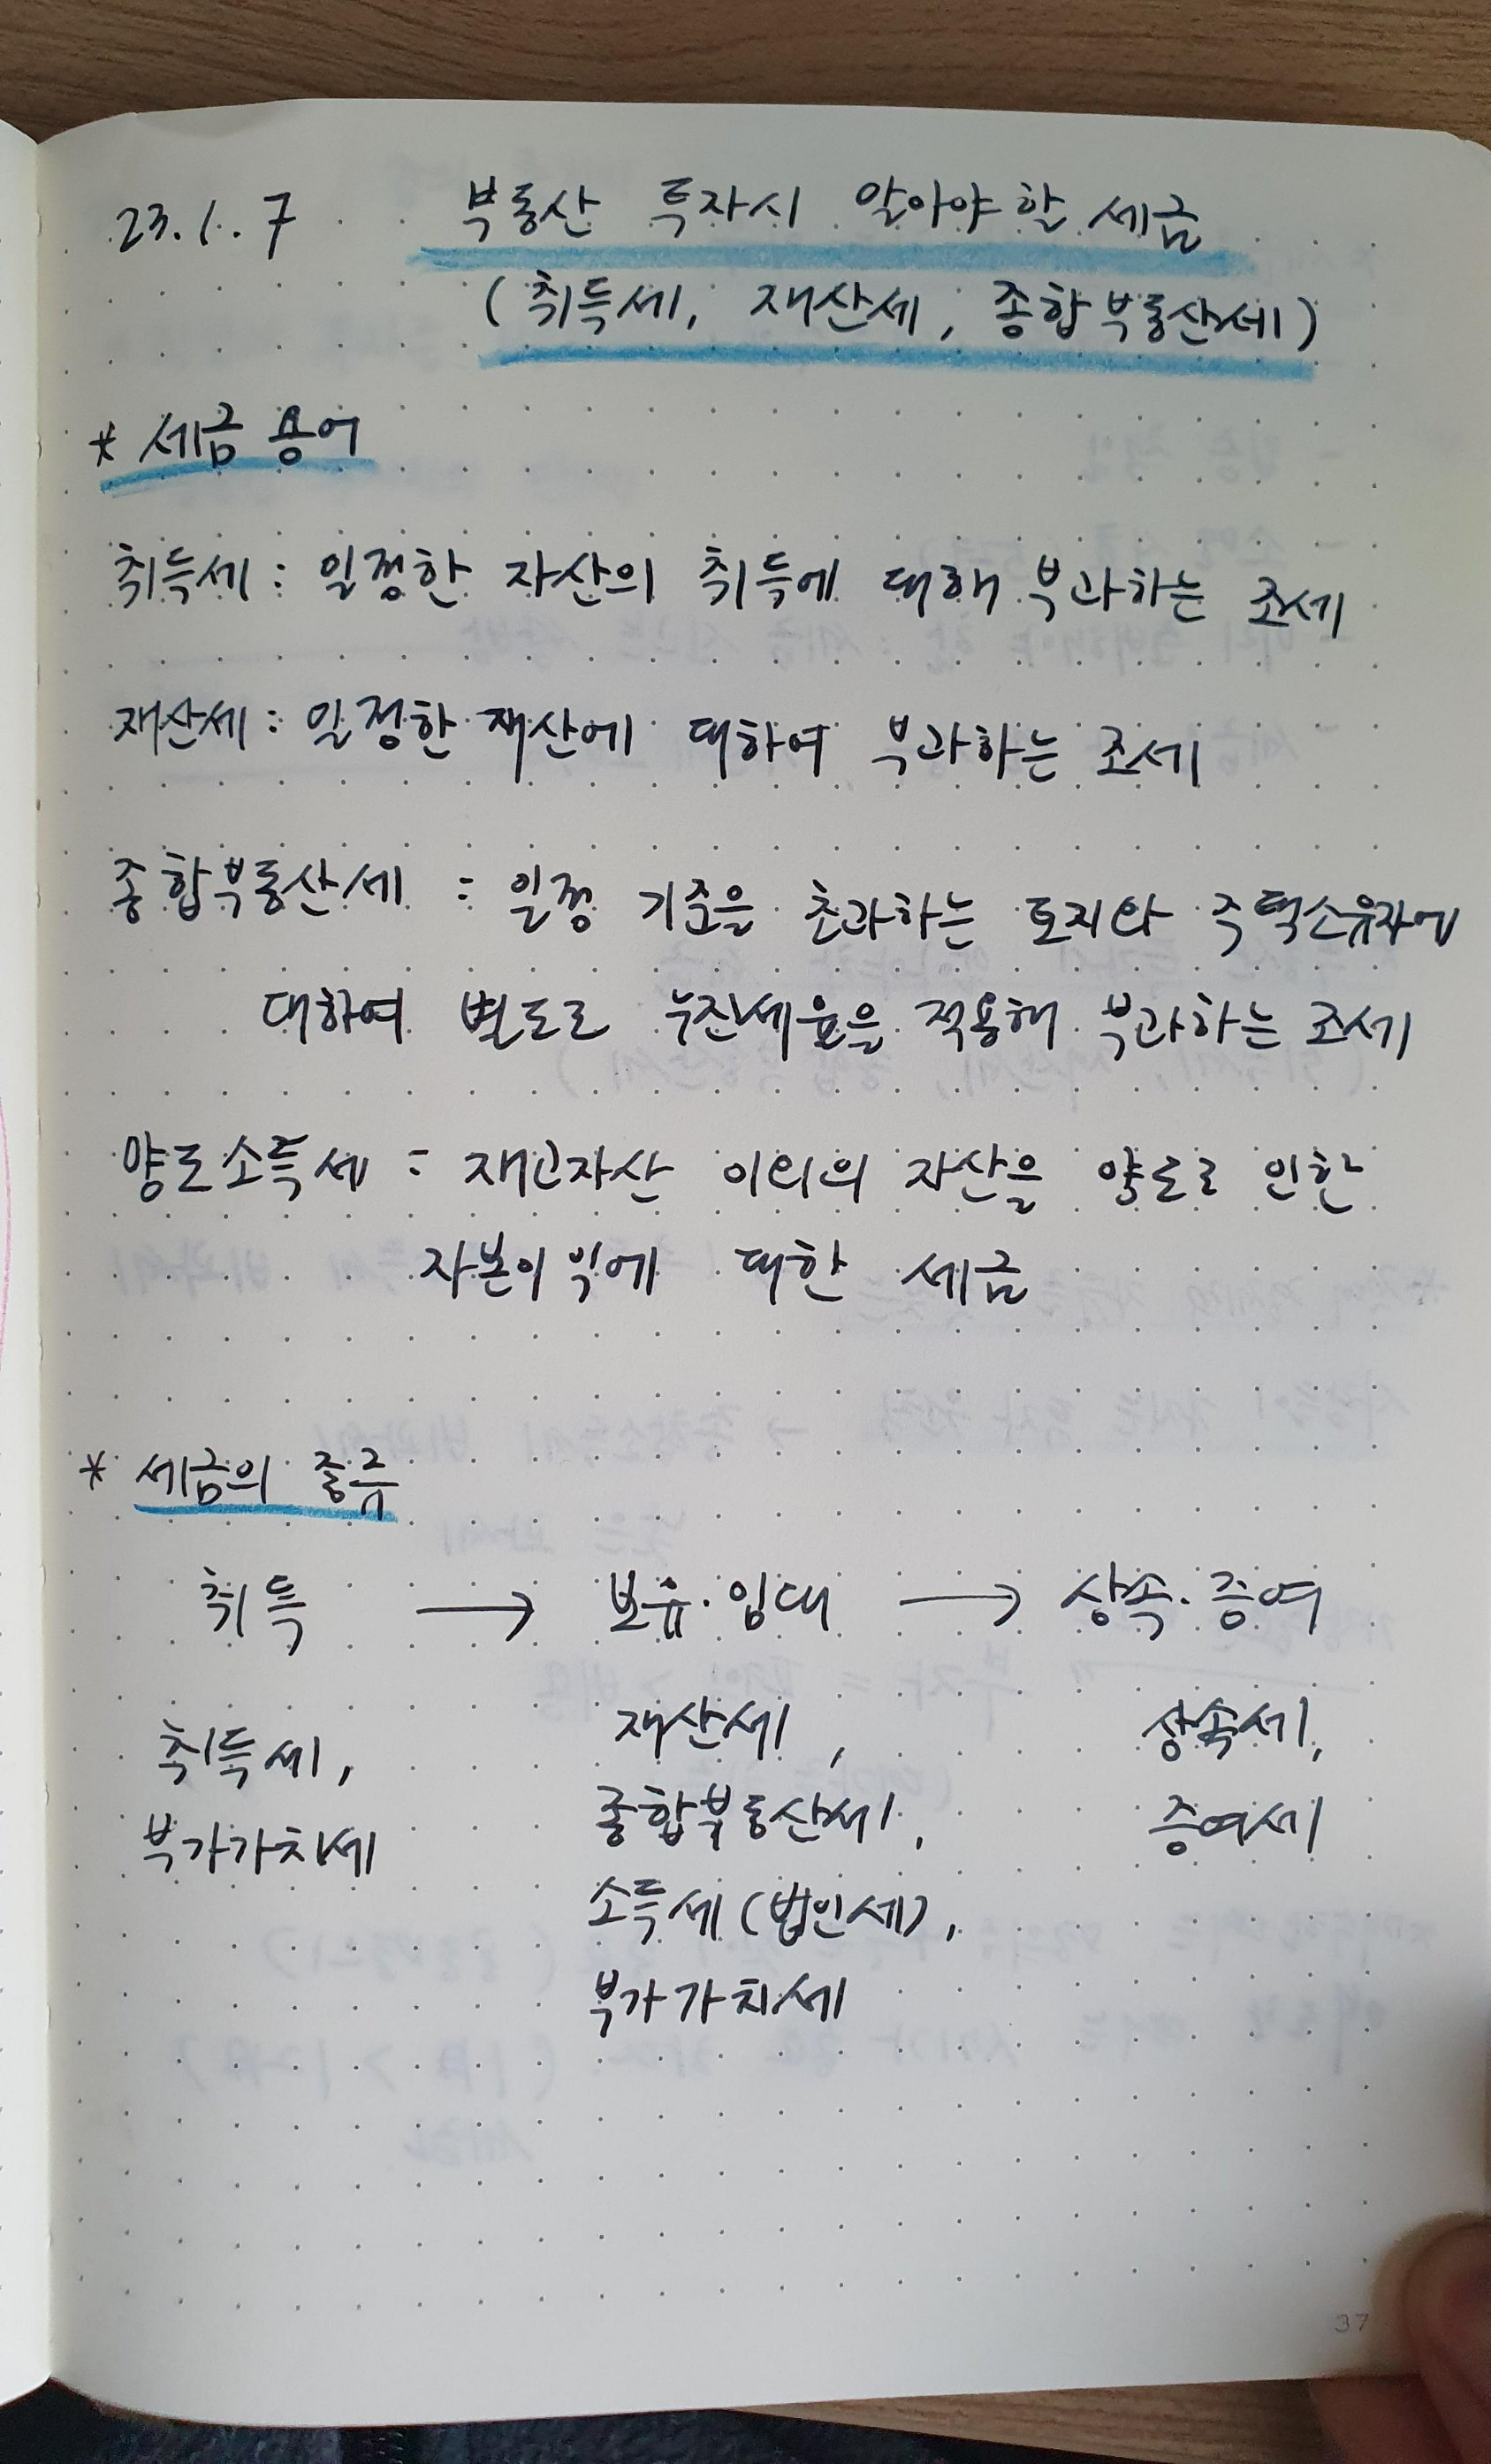 23.1.7 부동산 투자시 알아야할 세금
(취득세, 재산세, 종합부동산세)
* 세금 용어
취득세 : 일정한 자산의 취득에 대해 부과하는 조세
재산세 : 일정한 재산에 대하여 부과하는 조세
종합부동산세 : 일정 기준을 초과하는 토지와 주택소유자에
대하여 별도로 누진세율을 적용해 부과하는 조세
양도소득세 : 재고자산 이외의 자산을 양도로 인한
자본이익에 대한 세금
* 세금의 종류
취득 → 보유·임대 → 상속·증여
취득세, 재산세, 상속세,
부가가치세 종합부동산세, 증여세
소득세(법인세),
부가가치세
37